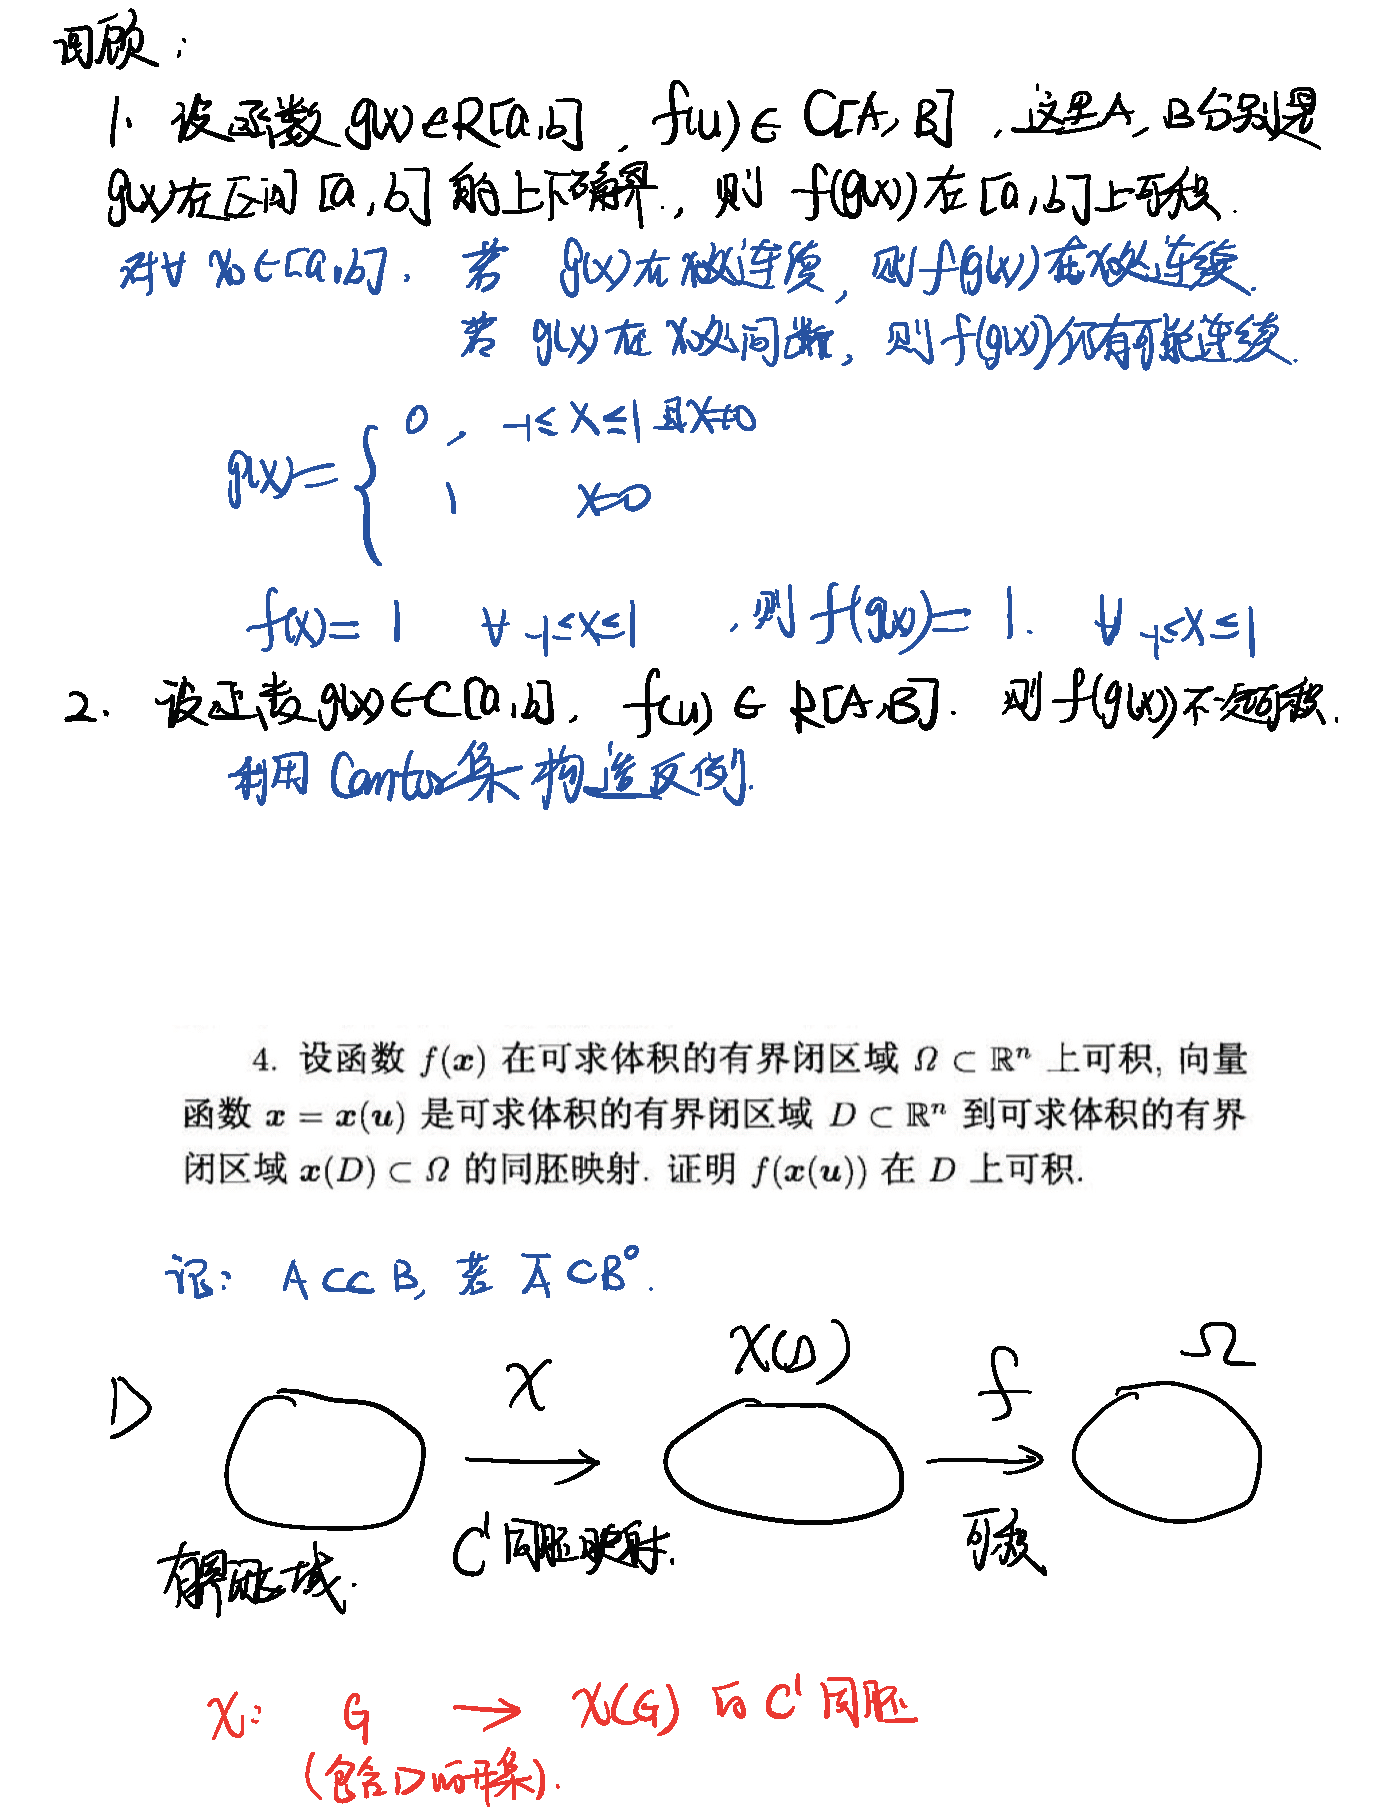 回顾：
1. 设函数 g(x)∈R[a,b], f(u)∈C[A,B], 这里A, B分别是
g(x)在区间[a,b]的上下确界., 则 f(g(x))在[a,b]上可积.
对∀ x₀∈[a,b]. 若 g(x)在x₀处连续, 则f(g(x))在x₀处连续.
若 g(x)在x₀处间断, 则f(g(x))仍有可能连续.
g(x)= { 0, -1≤x≤1且x≠0
1 x=0
f(x)= 1 ∀ -1≤x≤1 , 则 f(g(x))= 1. ∀ -1≤x≤1
2. 设函数g(x)∈C[a,b], f(u)∈R[A,B]. 则f(g(x))不一定可积.
利用Cantor集构造反例.
4. 设函数 f(x) 在可求体积的有界闭区域 Ω ⊂ ℝⁿ 上可积, 向量
函数 x = x(u) 是可求体积的有界闭区域 D ⊂ ℝⁿ 到可求体积的有界
闭区域 x(D) ⊂ Ω 的同胚映射. 证明 f(x(u)) 在 D 上可积.
记: A⊂⊂B, 若 A̅⊂B°.
D X X(D) f Ω
有界闭区域. C¹同胚映射. 可积
X: G → X(G) 的C¹同胚
(包含D的开集).